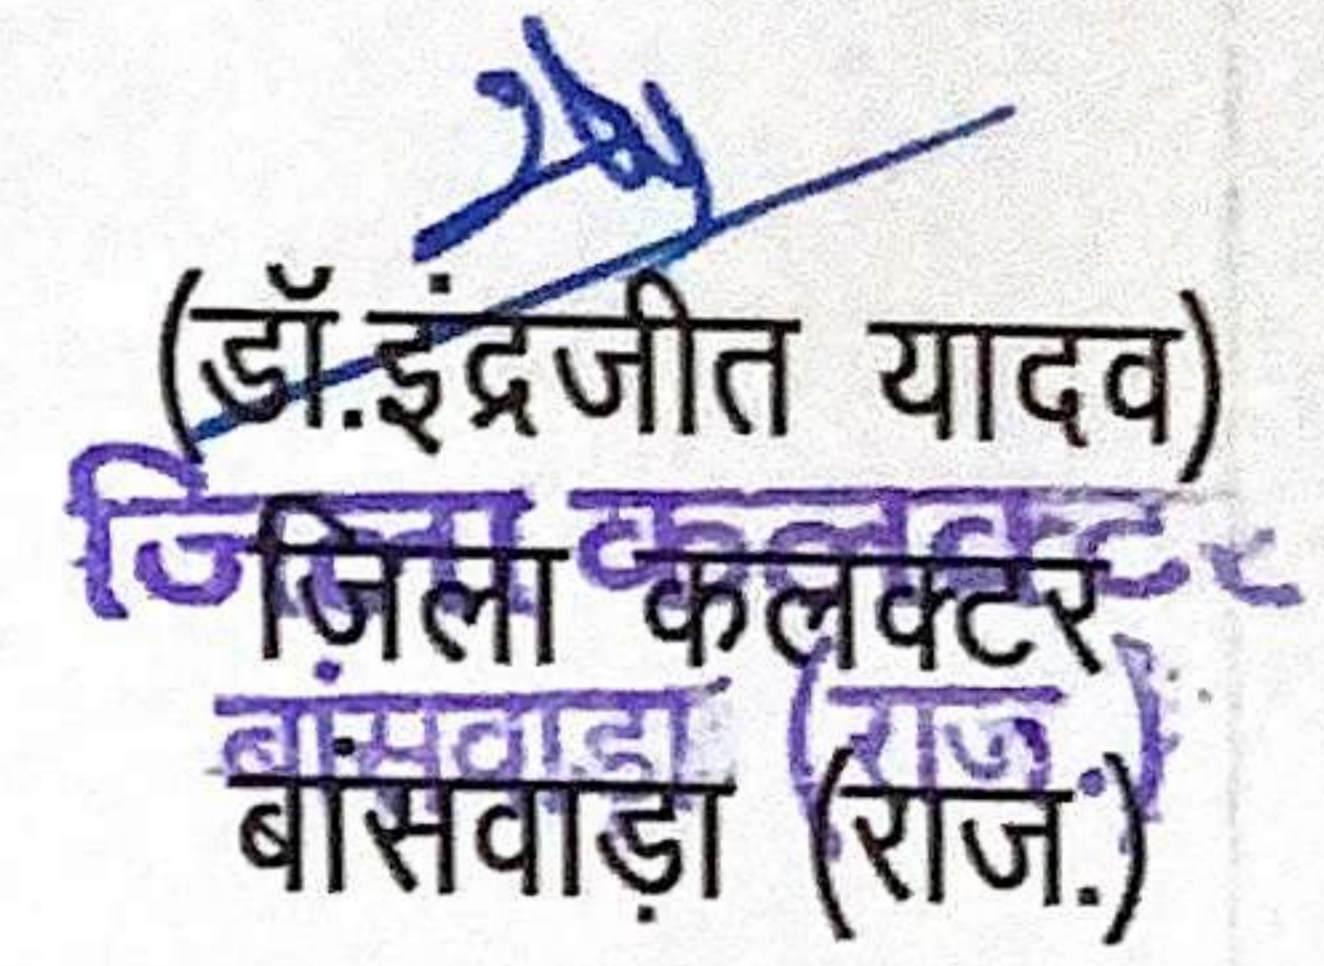 (डॉ.इंद्रजीत यादव)
जिला कलक्टर
जिला कलक्टर
बांसवाडा (राज.)
बांसवाड़ा (राज.)